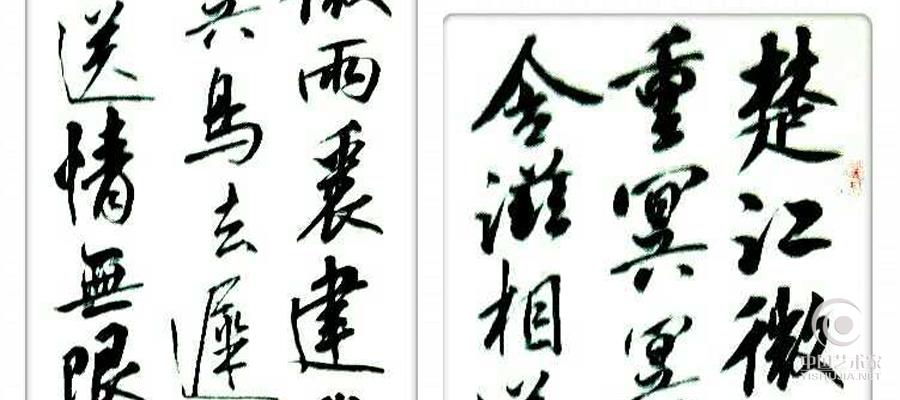 楚江微
重冥冥
含滋相送
微雨裏建
冥鳥去遲
送情無限
中国艺术家
YISHUJIA.NET